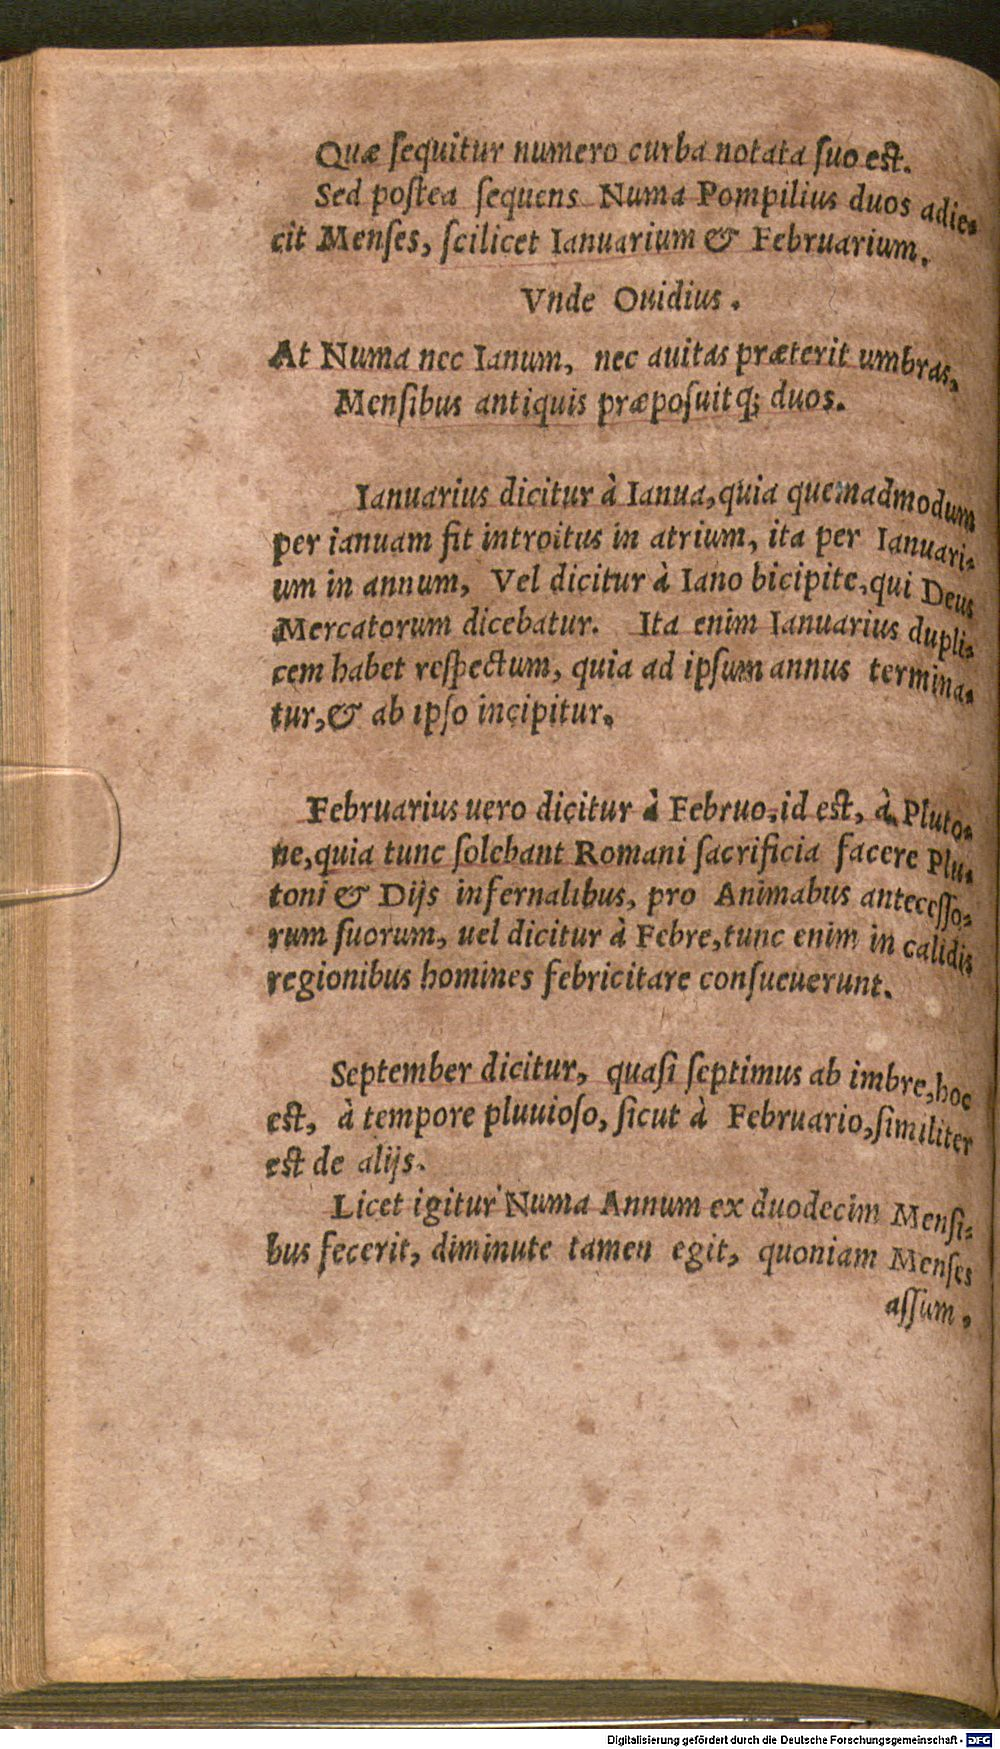 Quæ ſequitur numero curba notata ſuo eſt.
Sed poſtea ſequens Numa Pompilius duos adie-
cit Menſes, ſcilicet Ianuarium & Februarium.
Vnde Ouidius.
At Numa nec Ianum, nec auitas præterit umbras,
Menſibus antiquis præpoſuitq; duos.
Ianuarius dicitur à Ianua, quia quemadmodum
per ianuam fit introitus in atrium, ita per Ianuari-
um in annum, Vel dicitur à Iano bicipite, qui Deus
Mercatorum dicebatur. Ita enim Ianuarius dupli-
cem habet reſpectum, quia ad ipſum annus termina-
tur, & ab ipſo incipitur.
Februarius uero dicitur à Februo, id eſt, à Pluto-
ne, quia tunc ſolebant Romani ſacrificia facere Plu-
toni & Dijs infernalibus, pro Animabus anteceſſo-
rum ſuorum, uel dicitur à Febre, tunc enim in calidis
regionibus homines febricitare conſueuerunt.
September dicitur, quaſi ſeptimus ab imbre, hoc
eſt, à tempore pluuioſo, ſicut à Februario, ſimiliter
eſt de alijs.
Licet igitur Numa Annum ex duodecim Menſi-
bus fecerit, diminute tamen egit, quoniam Menſes
aſſum.
Digitalisierung gefördert durch die Deutsche Forschungsgemeinschaft - DFG